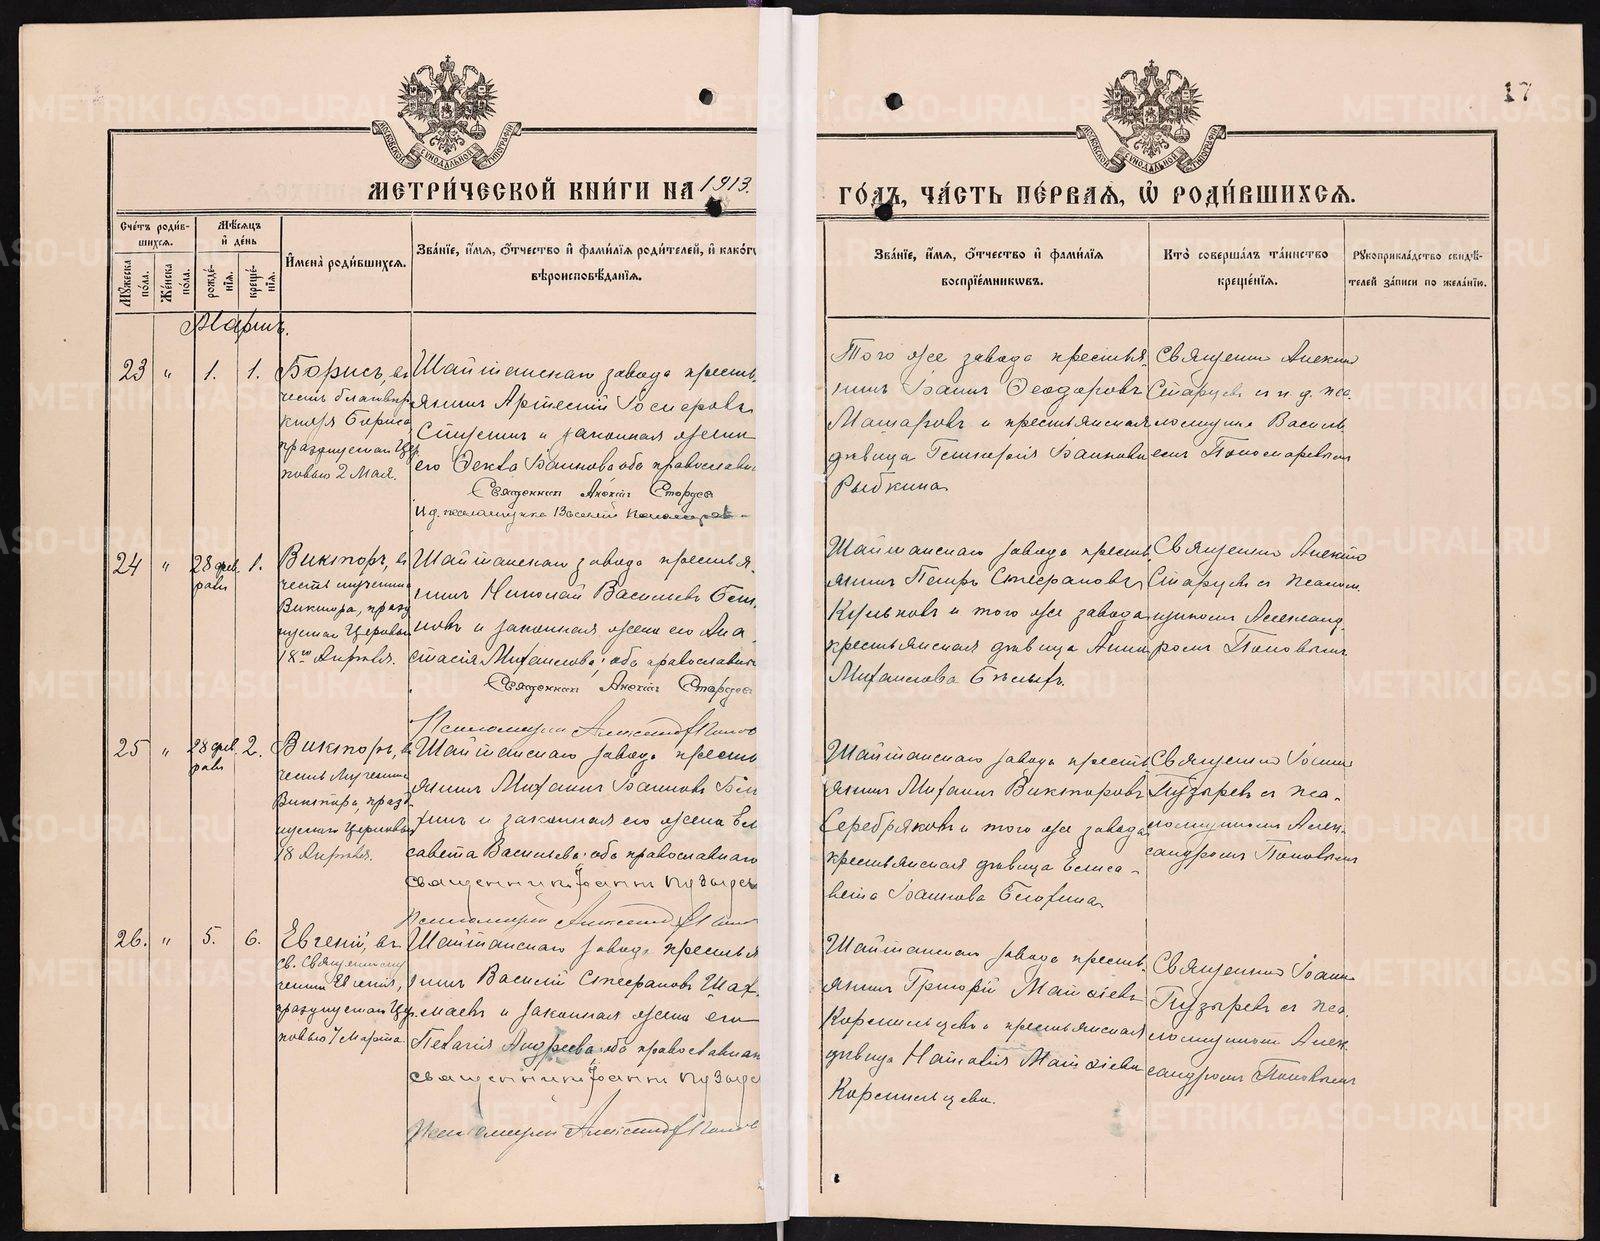 17
МЕТРИ́ЧЕСКОЙ КНИ́ГИ НА 1913.
ГО́ДЪ, ЧА́СТЬ ПЕ́РВАѦ, Ѽ РОДИ́ВШИХСѦ.
Сче́тъ роди́в-
шихсѧ.
Мѣ́сѧцъ
и де́нь
Мꙋжеска
по́ла.
Же́нска
по́ла.
рожде́-
нїѧ.
креще́-
нїѧ.
И҆мена̀ роди́вшихсѧ.
Зва́нїе, и҆́мѧ, ѻ҆́тчество и҆ фами́лїѧ роди́телей, и҆ како́гѡ
вѣроисповѣ́данїѧ.
Зва́нїе, и҆́мѧ, ѻ҆́тчество и҆ фами́лїѧ
воспрїе́мникѡвъ.
Кто̀ соверша́лъ та́инство
креще́нїѧ.
Рꙋкоприкла́дство свидѣ́-
телей за́писи по жела́нїю.
Мартъ.
23 " 1. 1.
Борисъ, въ
честь благовѣр.
князя Бориса,
празднуемаго Цер
ковью 2 Мая.
Шайтанскаго завода кресть
янинъ
и законная жена
его Іванова, оба православн
Священникъ Алексій Старцев
И. д. псаломщика Василій Пономарев
Того же завода крестья
нинъ Іванъ Ѳеодоровъ
и крестьянская
дѣвица Іванова
Рыбкина
Священник Алексій
Старцевъ съ и. д. пса
ломщика Василі
емъ Пономаревымъ
24 " 28 фев
раля 1.
Викторъ, въ
честь мученика
Виктора, празд
нуемаго Церковью
18го Апрѣля.
Шайтанскаго завода крестья
нинъ Николай Васильевъ
новъ и законная жена его Ана
стасія Михаилова; оба православные
Священник Алексій Старцев
Псаломщикъ Александр Попов
Шайтанскаго завода кресть
янинъ Петръ Стефановъ
и того же завода
крестьянская дѣвица Анна
Михаилова Бѣлыхъ.
Священник Алексій
Старцевъ съ псалом
щикомъ Александ
ромъ Поповымъ.
25 " 28 фев
раля 2.
Викторъ, въ
честь Мученика
Виктора, празд
нуемаго Церковью
18 Апрѣля.
Шайтанскаго завода кресть
янинъ Михаилъ Іванновъ
и законная его жена Ели
савета Васильева: оба православнаго
священникъ Іоаннъ Пузырев
Псаломщикъ Александр Попов
Шайтанскаго завода кресть
янинъ Михаилъ Викторовъ
Серебряковъ и того же завода
крестьянская дѣвица Елиса-
вета Іоаннова
Священник Іоаннъ
Пузыревъ съ пса-
ломщикомъ Алек-
сандромъ Поповымъ
26. " 5. 6.
Евгеній, въ
св. священному
ченика Евгенія,
празднуемаго Цер
ковью 7 Марта
Шайтанскаго завода крестья
нинъ Василій Стефановъ Шах
маевъ и законная жена его
Пелагія Андреева оба православна
священникъ Іоаннъ Пузырев
Псаломщикъ Александр Попов
Шайтанскаго завода кресть
янинъ Григорій Матѳіевъ
Кормильцевъ и крестьянская
дѣвица Наталія Матѳіева
Кормильцева.
Священник Іоаннъ
Пузыревъ съ пса
ломщикомъ Алек
сандромъ Поповымъ
METRIKI.GASO-URAL.RU